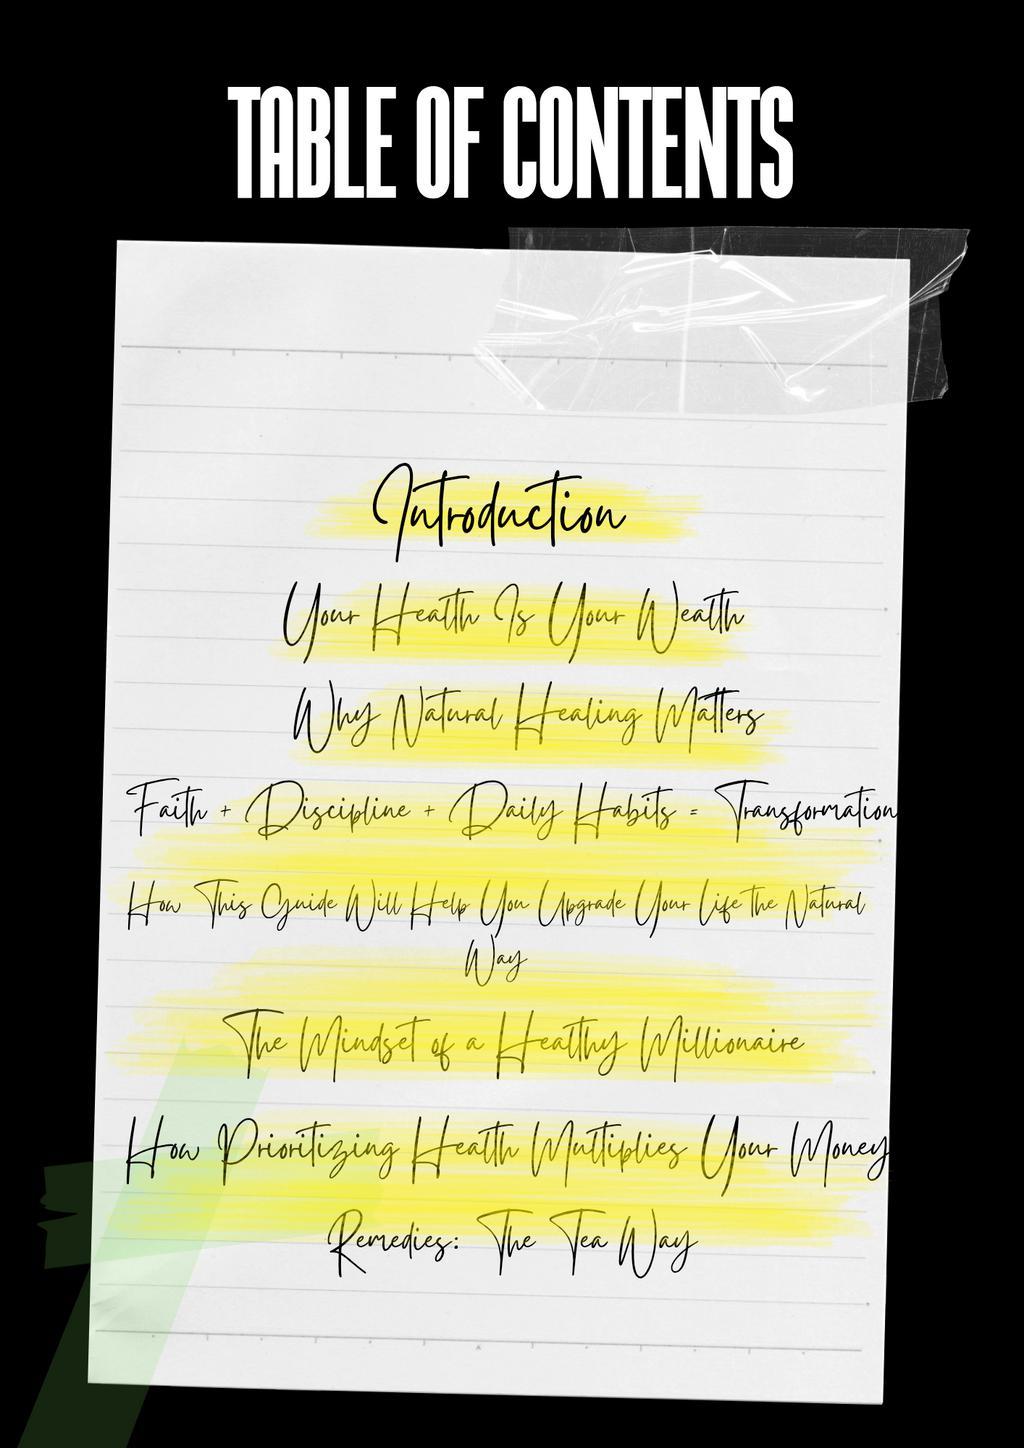 TABLE OF CONTENTS
Introduction
Your Health Is Your Wealth
Why Natural Healing Matters
Faith + Discipline + Daily Habits = Transformation
How This Guide Will Help You Upgrade Your Life the Natural
Way
The Mindset of a Healthy Millionaire
How Prioritizing Health Multiplies Your Money
Remedies: The Tea Way